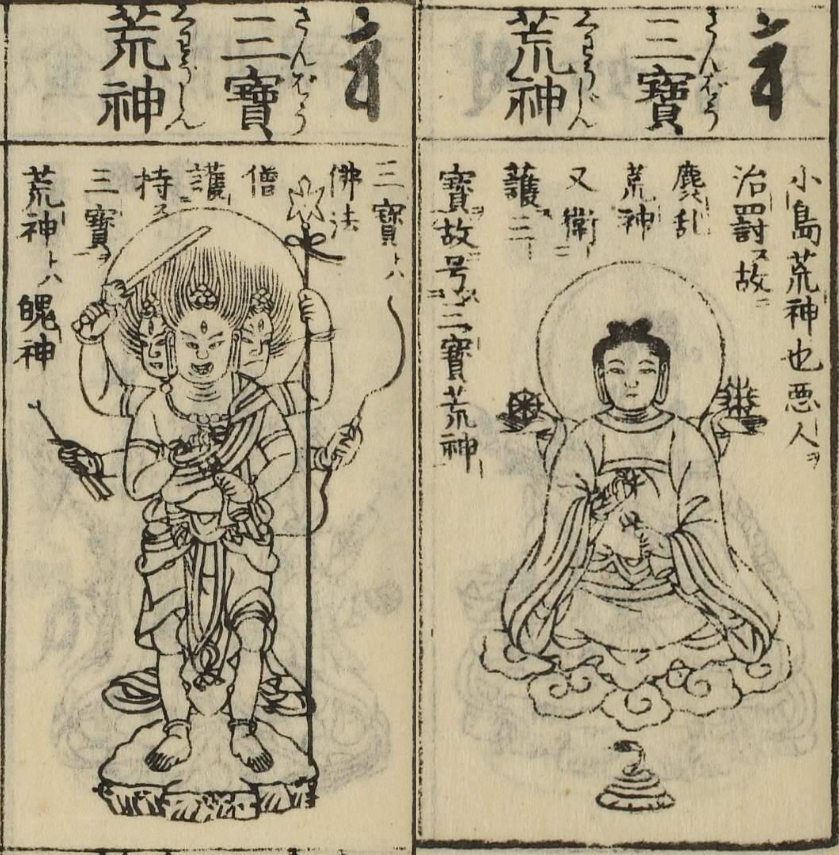 三寶
さんばう
荒神
くわうじん
小島荒神也悪人ヲ
治罸ス故ニ
麁乱
荒神
又衛
護三
寶故号三寶荒神
三寶
さんばう
荒神
くわうしん
三寳トハ
佛法
僧
護
持ス
三寳ヲ
荒神トハ
飽神